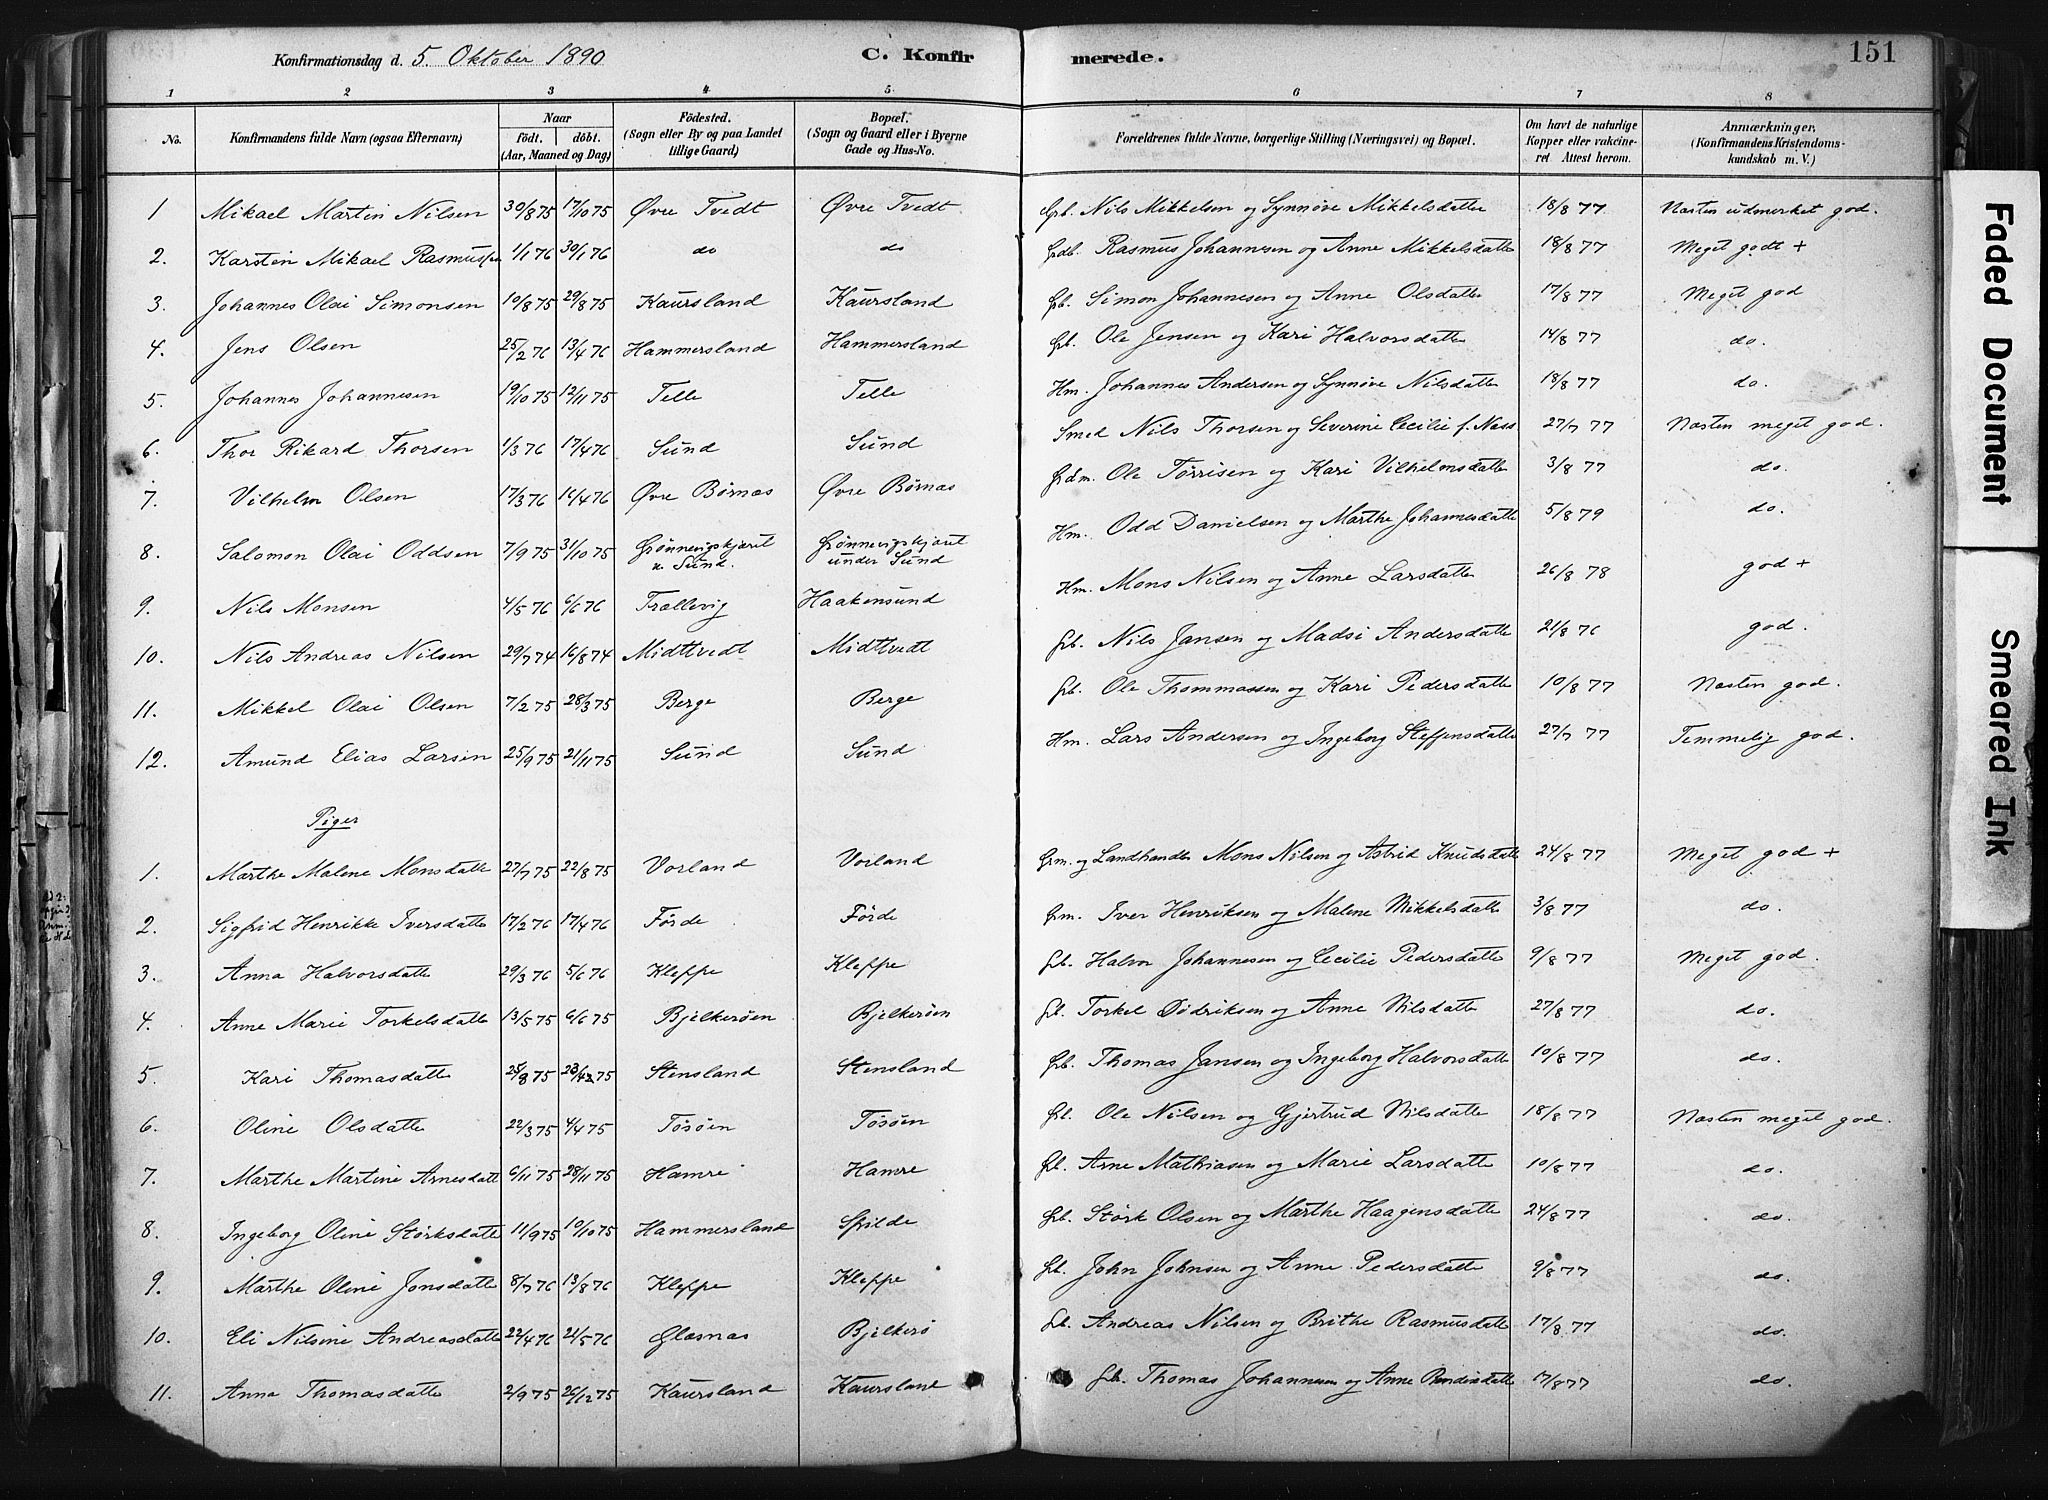 Konfirmationsdag d. 5. Oktober 1890 C. Konfirmerede. 151
1 2 3 4 5 6 7 8
No. Konfirmandens fulde Navn (ogsaa Efternavn) Naar født. døbt. (Aar, Maaned og Dag) Fødested. (Sogn eller By og paa Landet tillige Gaard) Bopæl. (Sogn og Gaard eller i Byerne Gade og Hus-No. Forældrenes fulde Navne, borgerlige Stilling (Næringsvei) og Bopæl. Om havt de naturlige Kopper eller vakcineret Attest herom. Anmærkninger, (Konfirmandens Kristendomskundskab m. V.)
1 Mikael Martin Nilsen 30/8 75 17/10 75 Øvre Tvedt Øvre Tvedt Grb. Nils Mikkelsen og Synnøve Mikkelsdatte 18/8 77 Næsten udmerket god.
2. Karsten Mikael Rasmussen 1/1 76 30/1 76 do do Grdb. Rasmus Johannesen og Anne Mikkelsdatte 18/8 77 Meget godt +
3. Johannes Olai Simonsen 10/8 75 29/8 75 Kaursland Kaursland Grb. Simon Johannesen og Anne Olsdatte 17/8 77 Meget god
4. Jens Olsen 25/2 76 13/4 76 Hammersland Hammersland Grb. Ole Jensen og Kari Halvorsdatte 14/8 77 do.
5. Johannes Johannesen 19/10 75 12/11 75 Telle Telle Hm. Johannes Andersen og Synnøve Nilsdatte 18/8 77 do.
6. Thor Rikard Thorsen 1/3 76 17/4 76 Sund Sund Smed Nils Thorsen og Severine Cecilie f. Næss 27/7 77 Næsten meget god.
7. Vilhelm Olsen 17/3 76 16/4 76 Øvre Børnæs Øvre Børnæs Grdm. Ole Tørrisen og Kari Vilhelmsdatte 3/8 77 do.
8. Salomon Olai Oddsen 7/9 75 31/10 75 Grønnevigskjæret u. Sund. Grønnevigskjæret under Sund Hm. Odd Danielsen og Marthe Johannesdatte 5/8 79 do.
9. Nils Monsen 4/5 76 6/6 76 Trællevig Haakensund Hm. Mons Nilsen og Anne Larsdatte 26/8 78 god +
10. Nils Andreas Nilsen 29/7 74 16/8 74 Midttvedt Midttvedt Grb. Nils Jansen og Madsi Andersdatte 21/8 76 god.
11. Mikkel Olai Olsen 7/2 75 28/3 75 Berge Berge Grb. Ole Thommassen og Kari Pedersdatte 10/8 77 Næsten god.
12. Amund Elias Larsen 25/9 75 21/11 75 Sund Sund Hm. Lars Andersen og Ingeborg Steffensdatte 27/7 77 Temmelig god.
Piger
1. Marthe Malene Monsdatte 27/7 75 22/8 75 Vorland Vorland Grm. og Landhandle Mons Nilsen og Astrid Knudsdatte 24/8 77 Meget god +
2. Sigfrid Henrikke Iversdatte 17/2 76 17/4 76 Førde Førde Grm. Iver Henriksen og Malene Mikkelsdatte 3/8 77 do.
3. Anna Halvorsdatte 29/3 76 5/6 76 Kleppe Kleppe Grb. Halvor Johannesen og Cecilie Pedersdatte 9/8 77 Meget god.
4. Anne Marie Torkelsdatte 13/5 75 6/6 75 Bjelkerøen Bjelkerøen Grb. Torkel Dødriksen og Anne Nilsdatte 27/8 77 do.
5. Kari Thomasdatte 25/8 75 75 Stensland Stensland Grb. Thomas Jansen og Ingeborg Halvorsdatte 10/8 77 do.
6. Oline Olsdatte 22/3 75 4/4 75 Tøsøen Tøsøen Grb. Ole Nilsen og Gjertrud Nilsdatte 18/8 77 Næsten meget god.
7. Marthe Martine Arnesdatt 6/11 75 28/11 75 Hamre Hamre Grb. Arne Mathiasen og Marie Larsdatte 10/8 77 do.
8. Ingeborg Oline Størksdatte 11/9 75 10/10 75 Hammersland Spilde Grb. Størk Olsen og Marthe Haagensdatte 24/8 77 do.
9. Marthe Oline Jonsdatte 8/7 76 13/8 76 Kleppe Kleppe Grb. John Johnsen og Anne Pedersdatte 9/8 77 do.
10. Eli Nilsine Andreasdatte 22/4 76 21/5 76 Glæsnæs Bjelkerø Grb. Andreas Nilsen og Brithe Rasmusdatte 17/8 77 do.
11. Anna Thomasdatte 2/9 75 26/12 75 Kaursland Kaursland Grb. Thomas Johannesen og Anne 17/8 77 do.
Faded Document
Smeared Ink